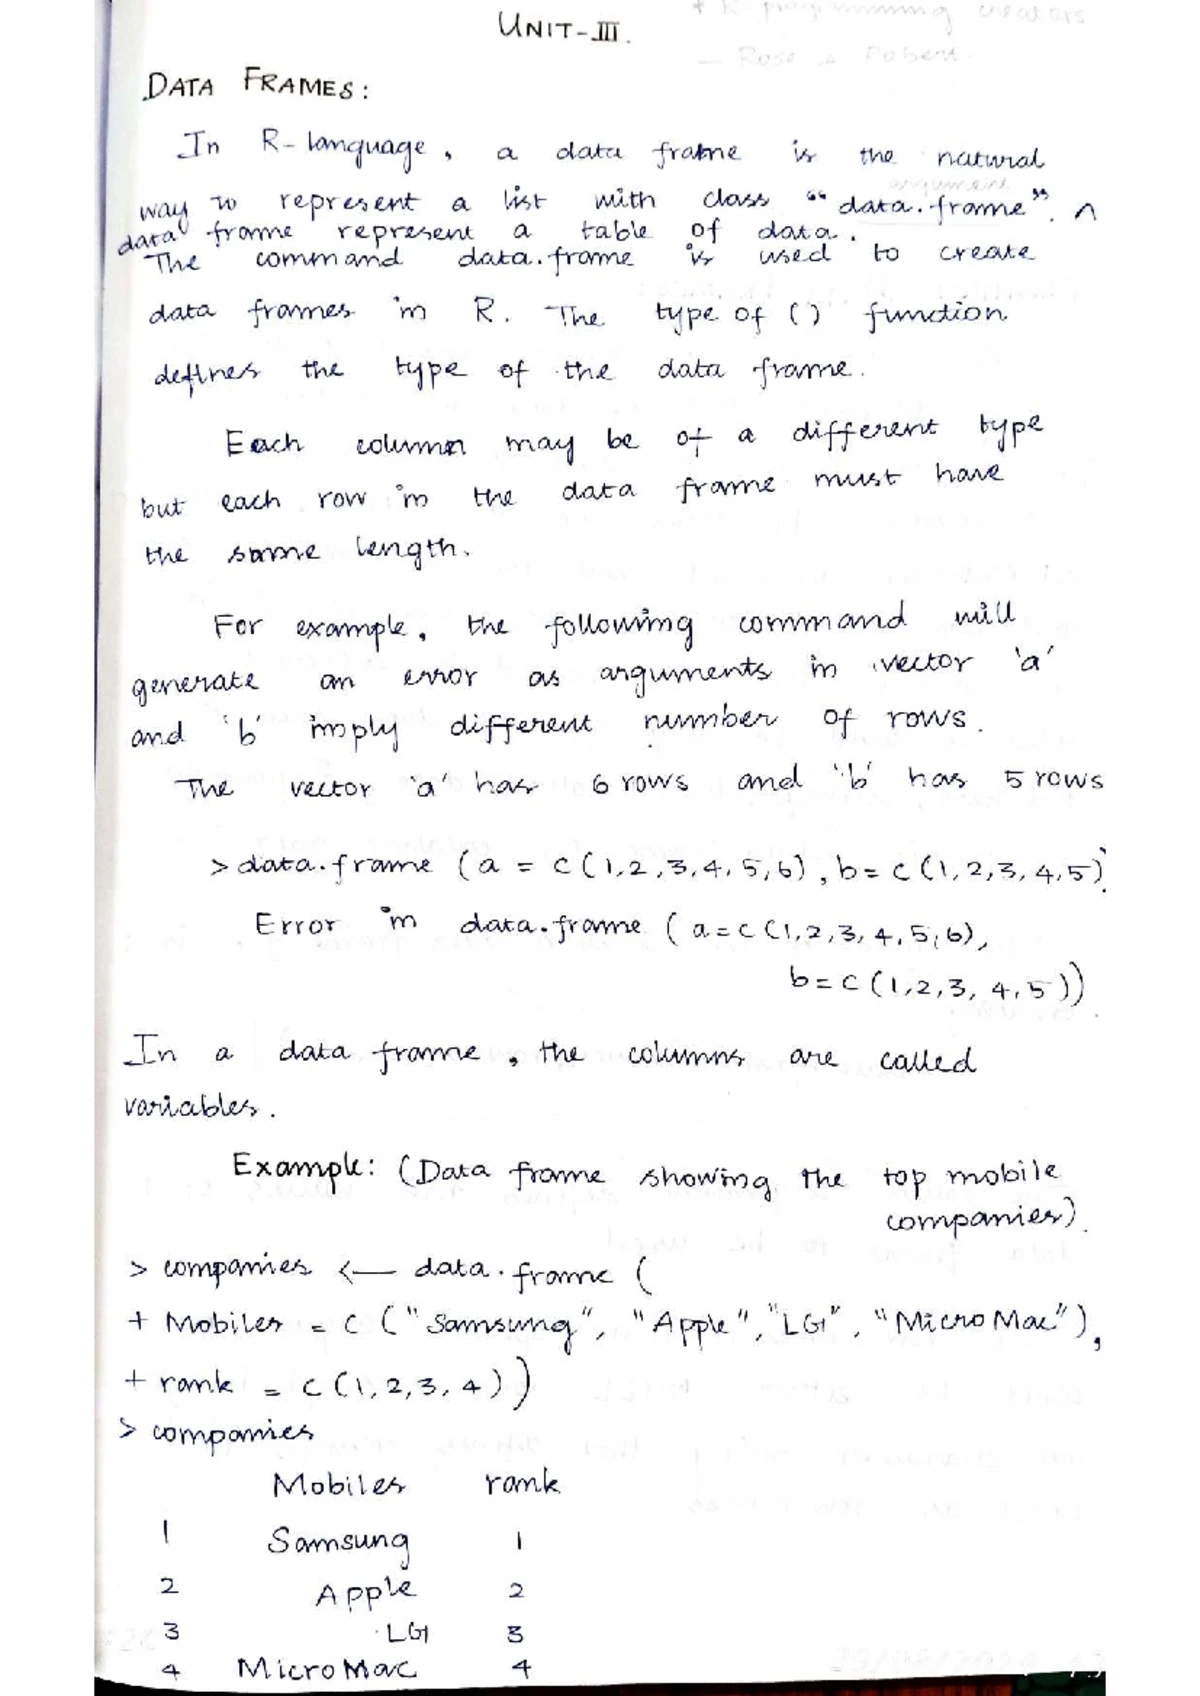 UNIT-III.
DATA FRAMES:
In R-language, a data frame is the natural
way to represent a list with class "data.frame". A
data frame represent a table of data.
The command data.frame is used to create
data frames in R. The type of () function
defines the type of the data frame.
Each column may be of a different type
but each row in the data frame must have
the same length.
For example, the following command will
generate an error as arguments in vector 'a'
and 'b' imply different number of rows.
The vector 'a' has 6 rows and 'b' has 5 rows
> data.frame (a = c(1,2,3,4,5,6), b = c(1,2,3,4,5)
Error in data.frame (a=c(1,2,3,4,5,6),
b=c(1,2,3,4,5))
In a data frame, the columns are called
variables.
Example: (Data frame showing the top mobile
companies).
> companies <— data.frame (
+ Mobiles = c ("Samsung", "Apple", "LG", "MicroMac"),
+ rank = c (1,2,3,4))
> companies
Mobiles rank
1 Samsung 1
2 Apple 2
3 LG 3
4 MicroMac 4